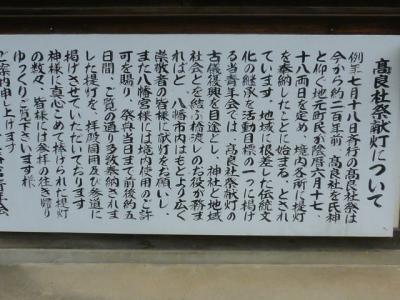 高良社祭献灯について
例年七月十八日斎行の高良社祭は
今から約二百年前、高良社を氏神
と仰ぐ地元町民が陰暦六月十七、
十八両日を定め、境内各所に提灯
を奉納したことに始まる、とされ
ています。地域に根差した伝統文
化の継承を活動目標の一つに掲げ
る当青年会では、高良社祭献灯の
古儀復興を目途とし、神社と地域
社会とを結ぶ橋渡しのお役が務ま
ればと、八幡市内はもとより広く
崇敬者の皆様に献灯をお願いし、
また八幡宮様には境内使用のご許
可を賜り、祭典当日まで前後約五
日間、ご覧の通り多数奉納されま
した提灯を、拝殿周囲及び参道に
掲げさせていただいております
神様に真心こめて捧げられた提灯
の数々、皆様にはご参拝の往き帰り
ゆっくりご覧下さいます様
ご案内申し上げます